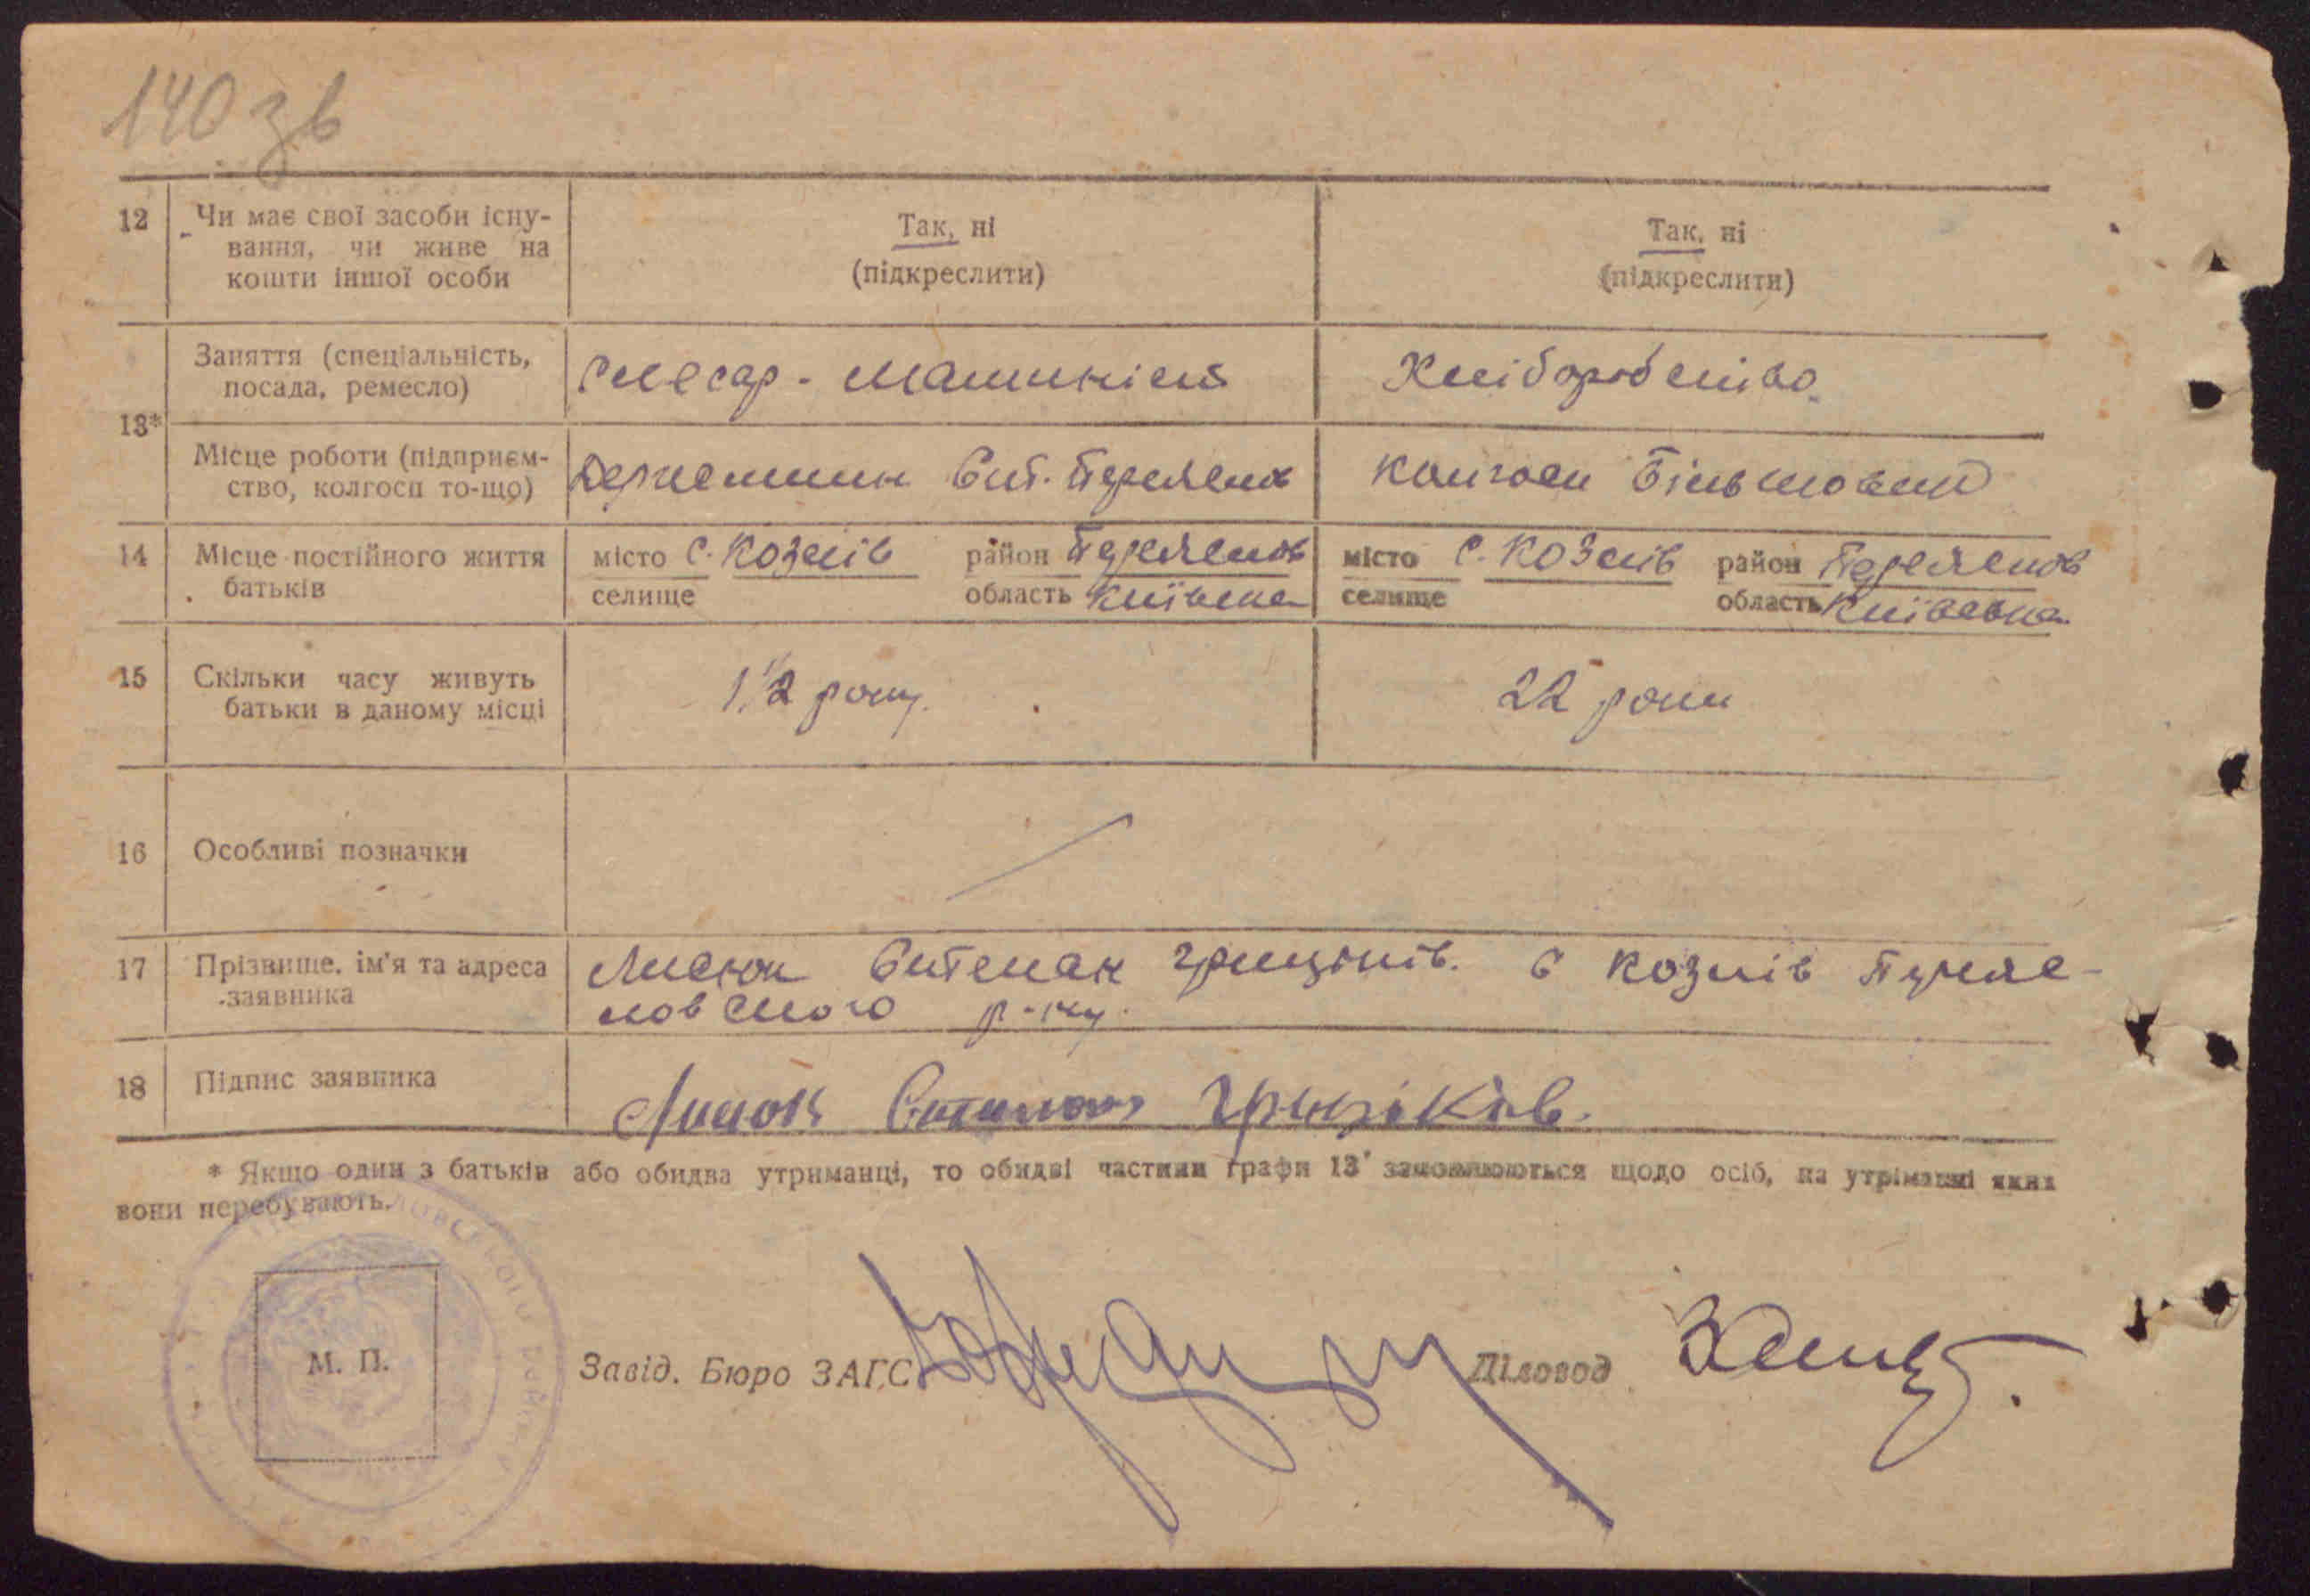 140 зв
12 Чи має свої засоби існу-
вання, чи живе на
кошти іншої особи
Так, ні
(підкреслити)
Так, ні
(підкреслити)
13*
Заняття (спеціальність,
посада, ремесло)
Слесар - машиніст
Хліборобство
Місце роботи (підприєм-
ство, колгосп то-що)
колгосп Більшовик
14 Місце постійного життя
батьків
місто с. Козлів район
селище область Київська
місто с. Козлів район
селище область Київська
15 Скільки часу живуть
батьки в даному місці
1 1/2 року.
22 роки
16 Особливі позначки
17 Прізвище, ім'я та адреса
заявника
с Козлів
р-ну.
18 Підпис заявника
* Якщо один з батьків або обидва утриманці, то обидві частини графи 13 заповнюються щодо осіб, на утріманні яких
вони перебувають.
М. П.
Завід. Бюро ЗАГС
Діловод